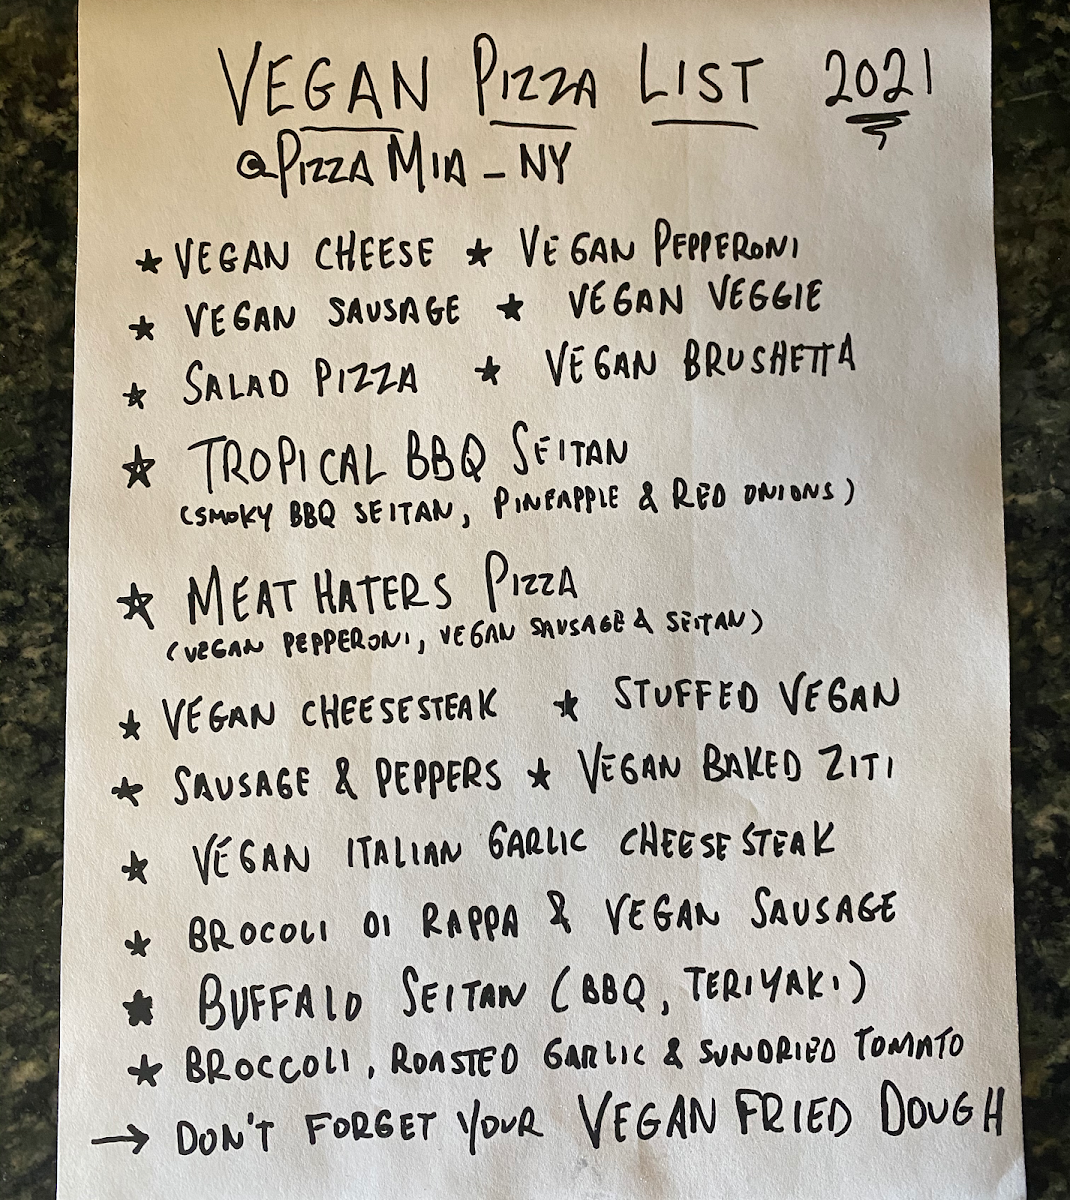 VEGAN PIZZA LIST 2021
@PIZZA MIA_NY
★ VEGAN CHEESE ★ VEGAN PEPPERONI
★ VEGAN SAUSAGE ★ VEGAN VEGGIE
★ SALAD PIZZA ★ VEGAN BRUSHETTA
★ TROPICAL BBQ SEITAN
(SMOKY BBQ SEITAN, PINEAPPLE & RED ONIONS)
★ MEAT HATERS PIZZA
(VEGAN PEPPERONI, VEGAN SAUSAGE & SEITAN)
★ VEGAN CHEESESTEAK ★ STUFFED VEGAN
★ SAUSAGE & PEPPERS ★ VEGAN BAKED ZITI
★ VEGAN ITALIAN GARLIC CHEESESTEAK
★ BROCOLI DI RAPPA & VEGAN SAUSAGE
★ BUFFALO SEITAN (BBQ, TERIYAKI)
★ BROCCOLI, ROASTED GARLIC & SUNDRIED TOMATO
→ DON'T FORGET YOUR VEGAN FRIED DOUGH